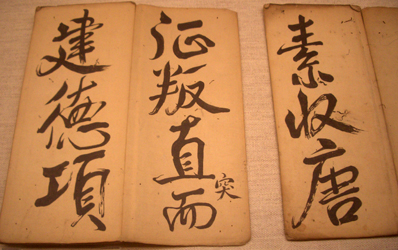 素收唐
征叛直而
突
建德項